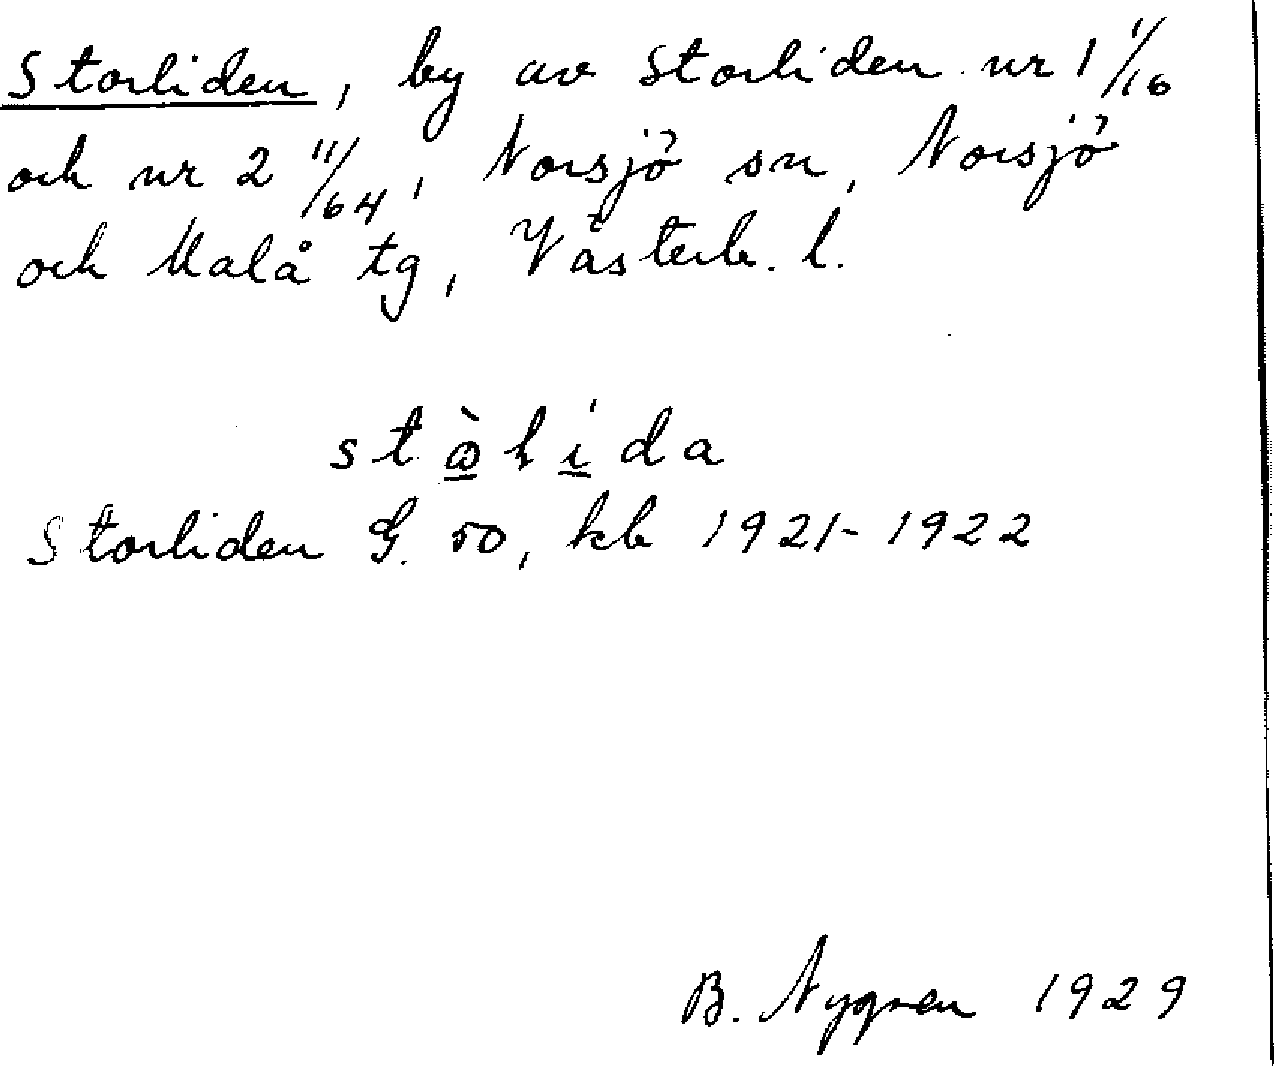 Storliden, by av Storliden nr 1 1/16
och nr 2 11/64, Norsjö sn, Norsjö
och Malå tg, Västerb. l.
Storliden G. 50, kb 1921-1922
B. Nygren 1929